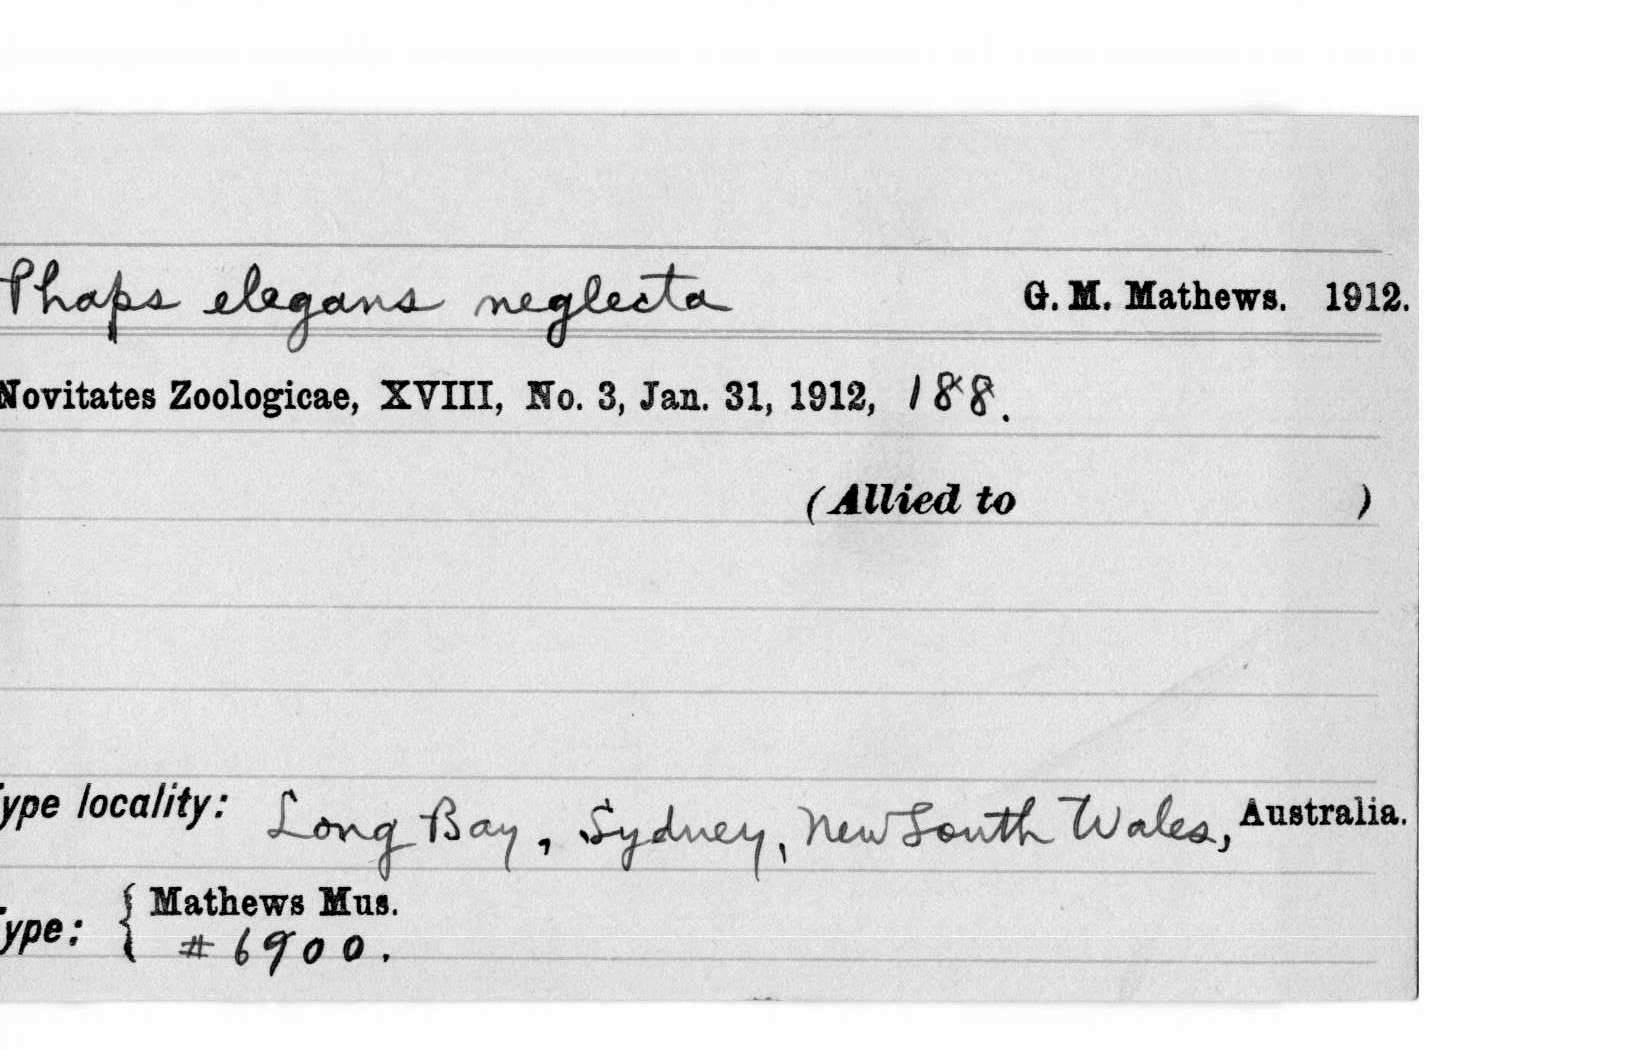 Phaps elegans neglecta G. M. Mathews. 1912.
Novitates Zoologicae, XVIII, No. 3, Jan. 31, 1912, 188.
(Allied to )
ype locality: Long Bay, Sydney, New South Wales, Australia.
Mathews Mus.
ype: { # 6900.